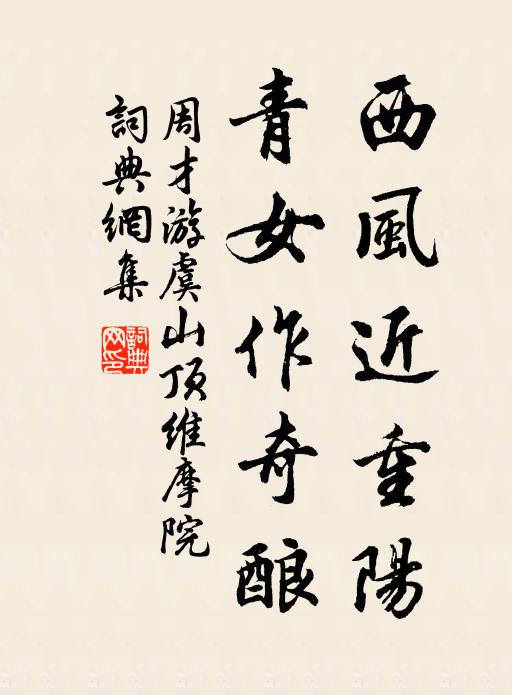 西風近重陽
青女作奇酿
周才游虞山頂維摩院
詞典網集
詞典网印